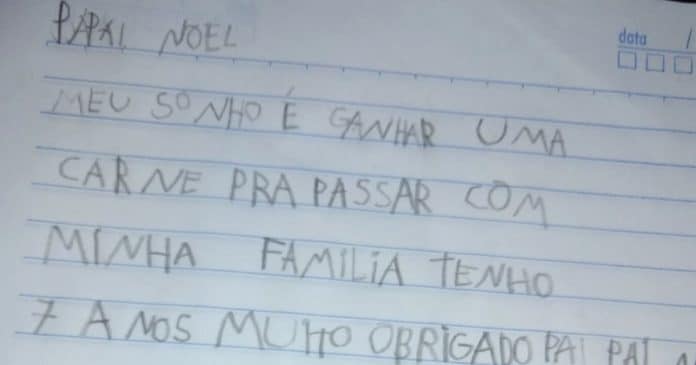 PAPAI NOEL
data /
MEU SONHO É GANHAR UMA
CARNE PRA PASSAR COM
MINHA FAMILIA TENHO
7 ANOS MUITO OBRIGADO PAI PAI